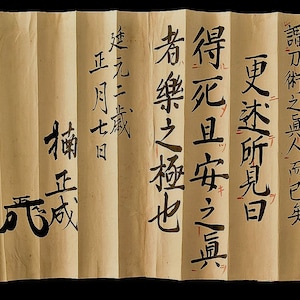 謂刀術之眞人而已矣
更述所見曰
得死且安之眞
者樂之極也
延元二歳
正月七日
楠正成